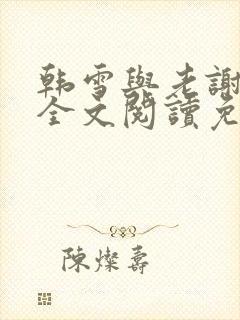 韩雪與老謝
全文閱讀免
陳燦壽